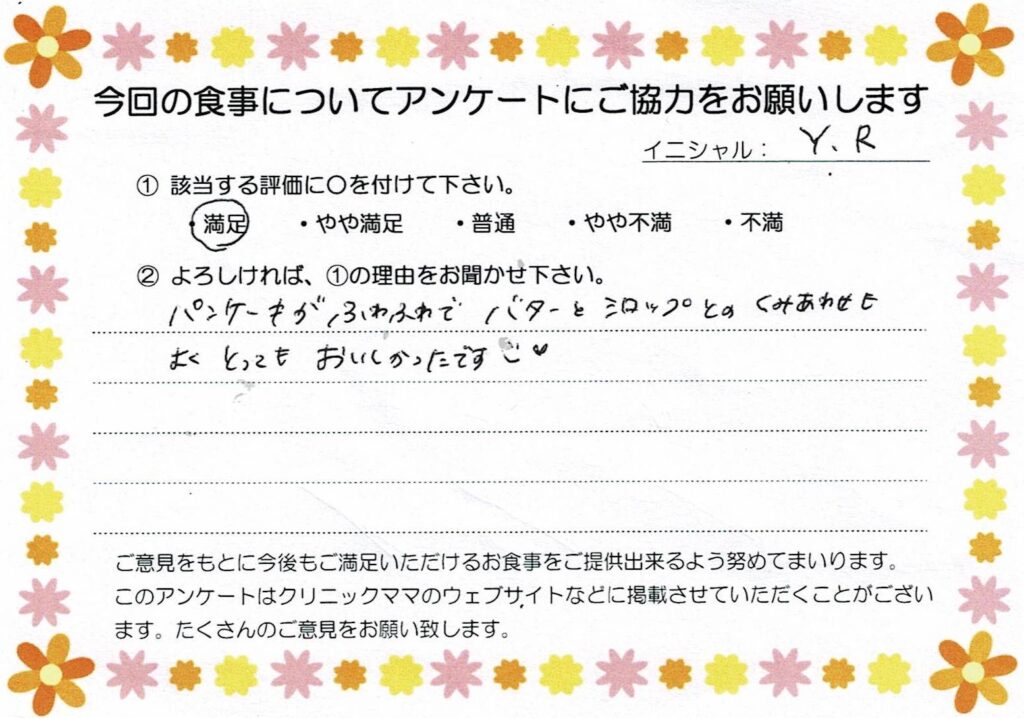 今回の食事についてアンケートにご協力をお願いします
イニシャル： Y. R
① 該当する評価に〇を付けて下さい。
・満足 ・やや満足 ・普通 ・やや不満 ・不満
② よろしければ、①の理由をお聞かせ下さい。
パンケーキがふわふわで バターとシロップとの くみあわせも
よく とっても おいしかったです♥
ご意見をもとに今後もご満足いただけるお食事をご提供出来るよう努めてまいります。
このアンケートはクリニックママのウェブサイトなどに掲載させていただくことがござい
ます。たくさんのご意見をお願い致します。